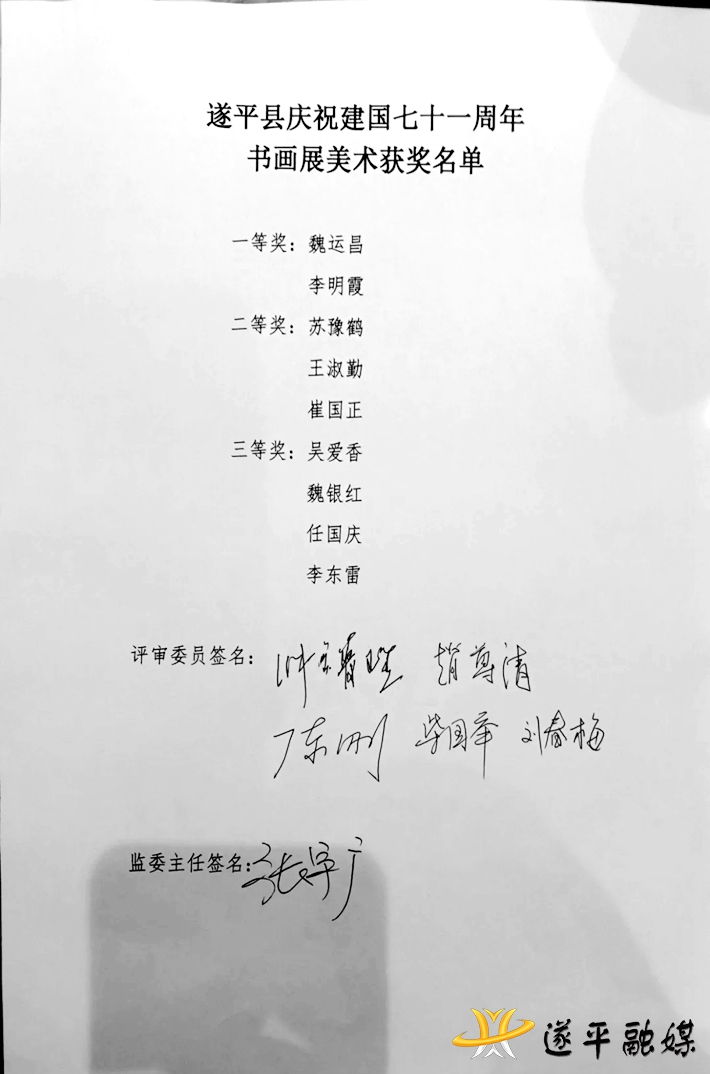 遂平县庆祝建国七十一周年
书画展美术获奖名单
一等奖：魏运昌
李明霞
二等奖：苏豫鹤
王淑勤
崔国正
三等奖：吴爱香
魏银红
任国庆
李东雷
评审委员签名： 赵尊清
陈刚 柴国举 刘春梅
监委主任签名：
遂平融媒